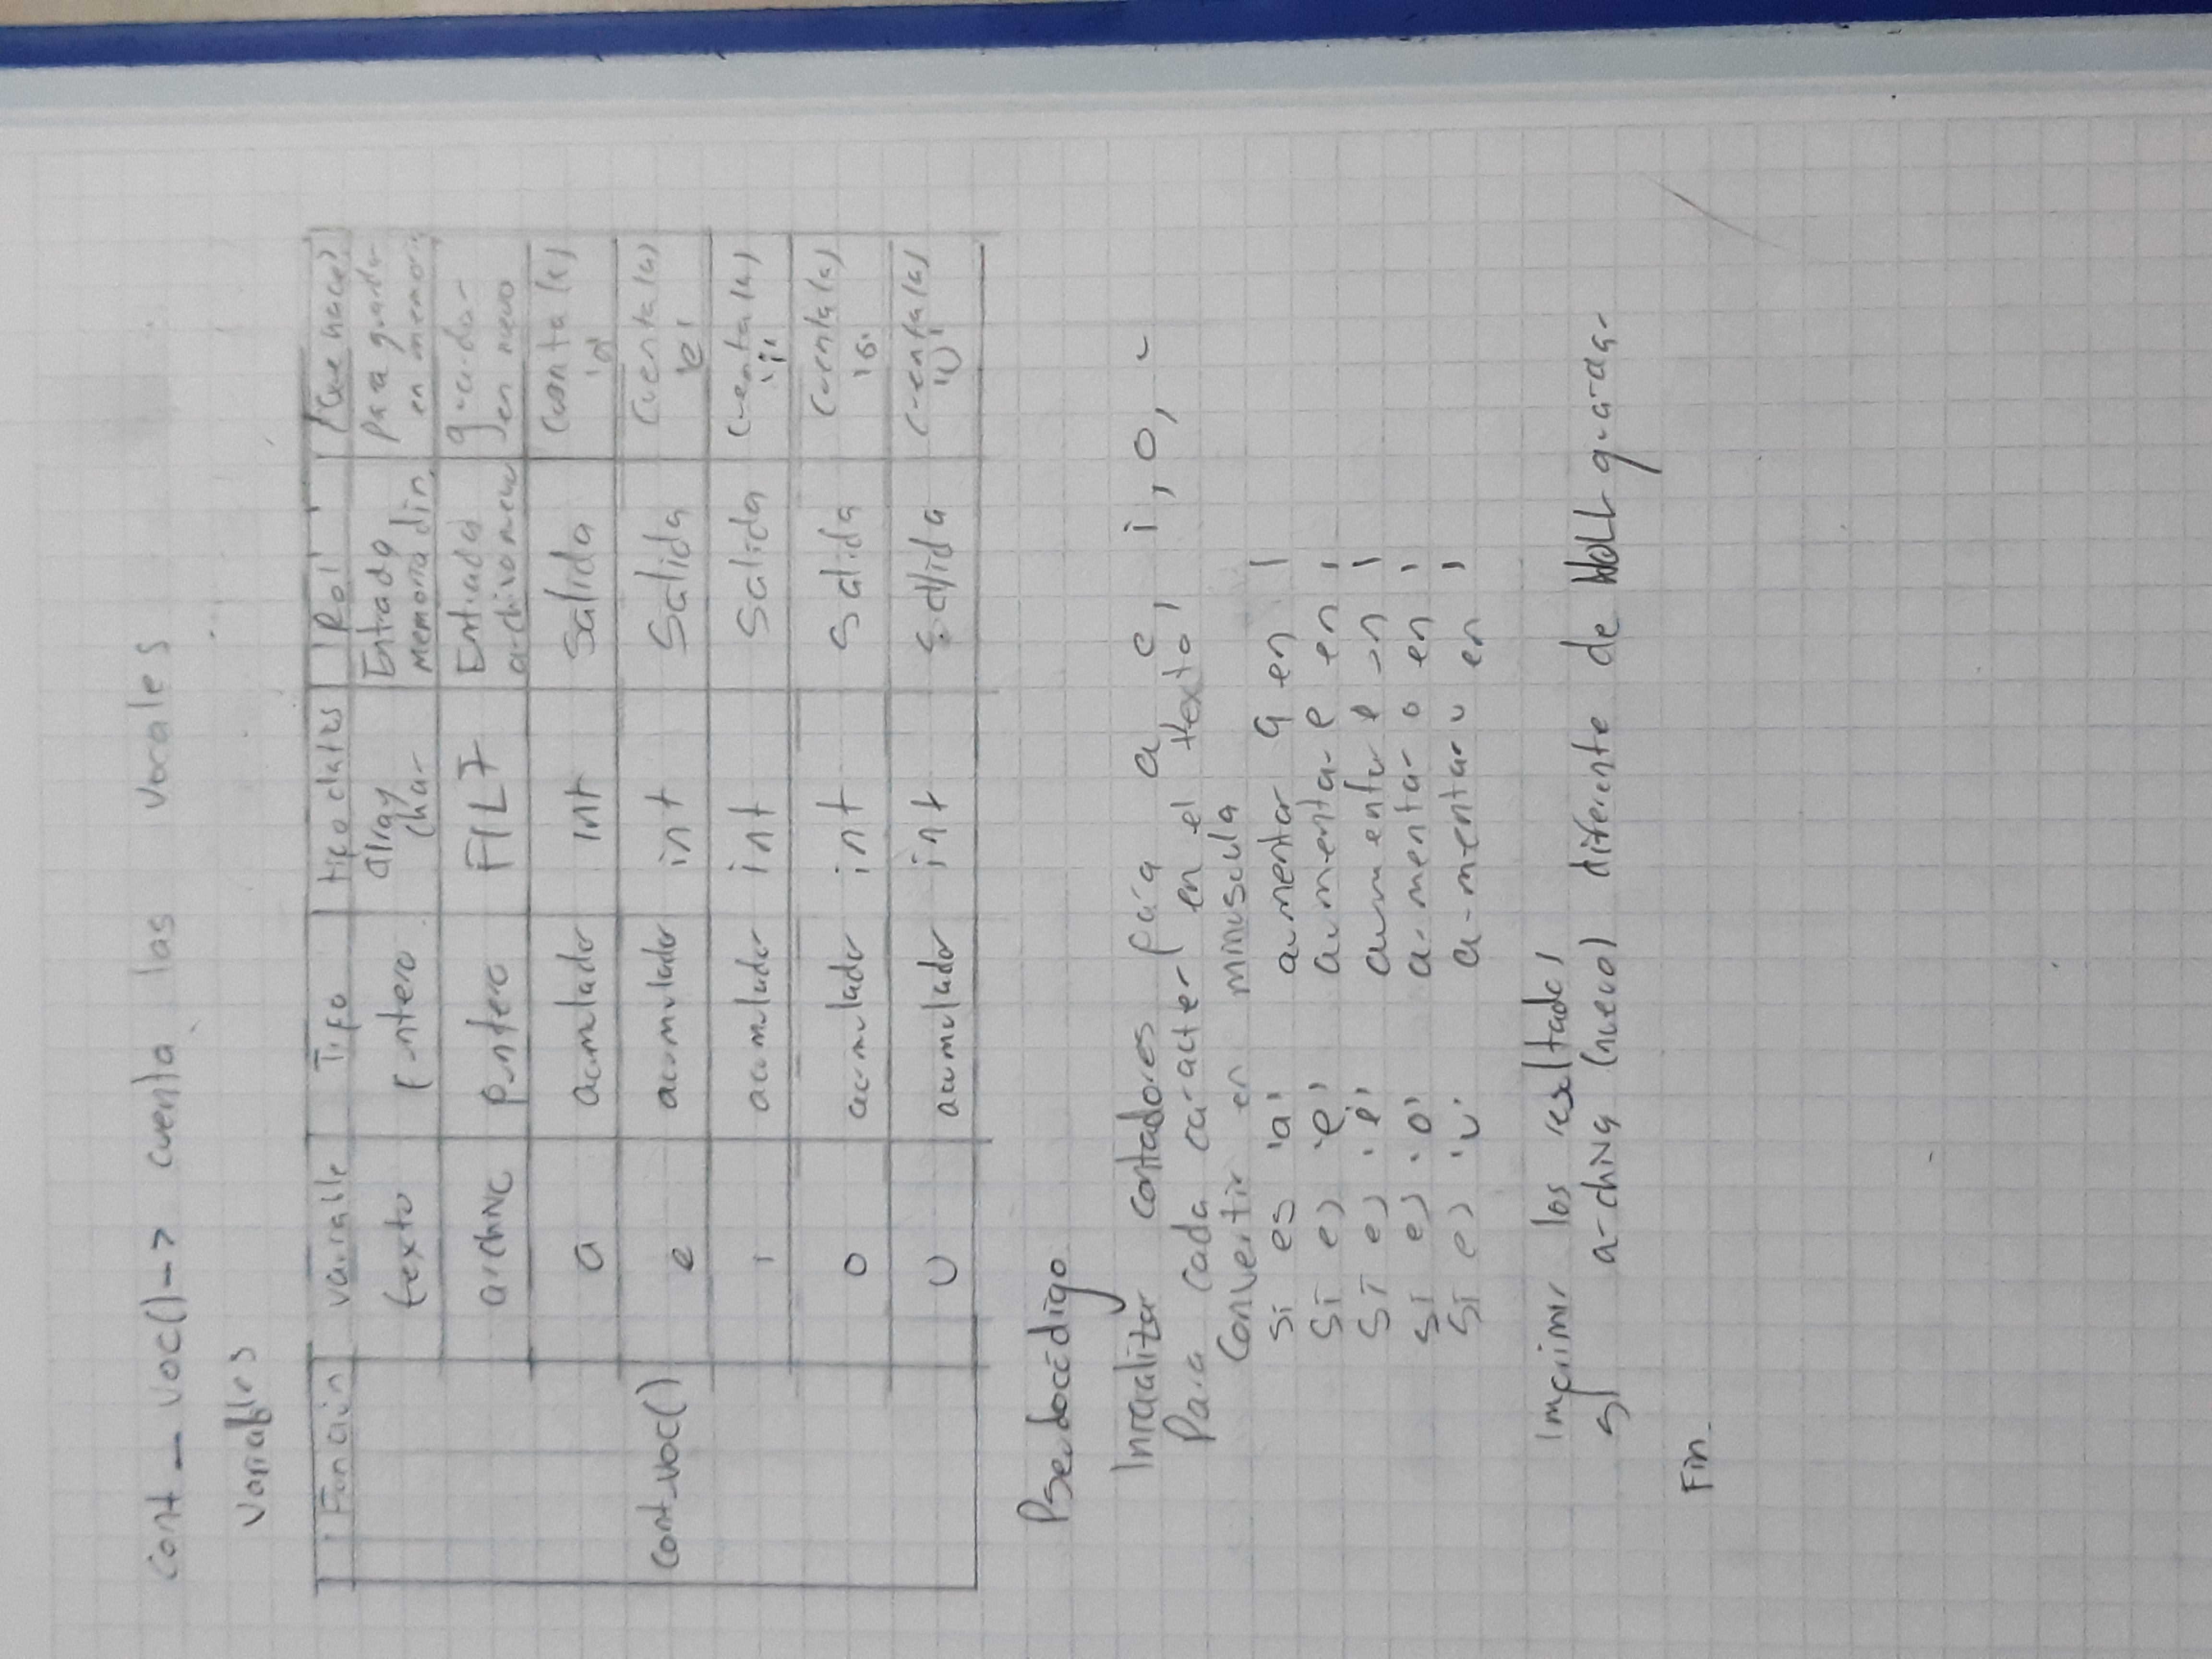 cont_voc()-> cuenta las vocales
Variables
Función variable Tipo tipo datos Rol ¿Que hace?
texto puntero array char Entrada memoria din. para guardar en memoria
archivo puntero FILE Entrada archivo nuevo guardar en nuevo
a acumulador int Salida Cuenta la(s) 'a'
cont_voc() e acumulador int Salida Cuenta la(s) 'e'
i acumulador int Salida Cuenta la(s) 'i'
o acumulador int Salida Cuenta la(s) 'o'
U acumulador int Salida Cuenta la(s) 'U'
Pseudocódigo
Inicializar contadores para a, e, i, o, u
Para cada caracter en el texto
Convertir en minuscula
si es 'a' aumentar a en 1
Si es 'e' aumentar e en 1
Si es 'i' aumentar i en 1
si es 'o' aumentar o en 1
Si es 'u' aumentar u en 1
Imprimir los resultados
si archivo (nuevo) diferente de NULL guardar
Fin.